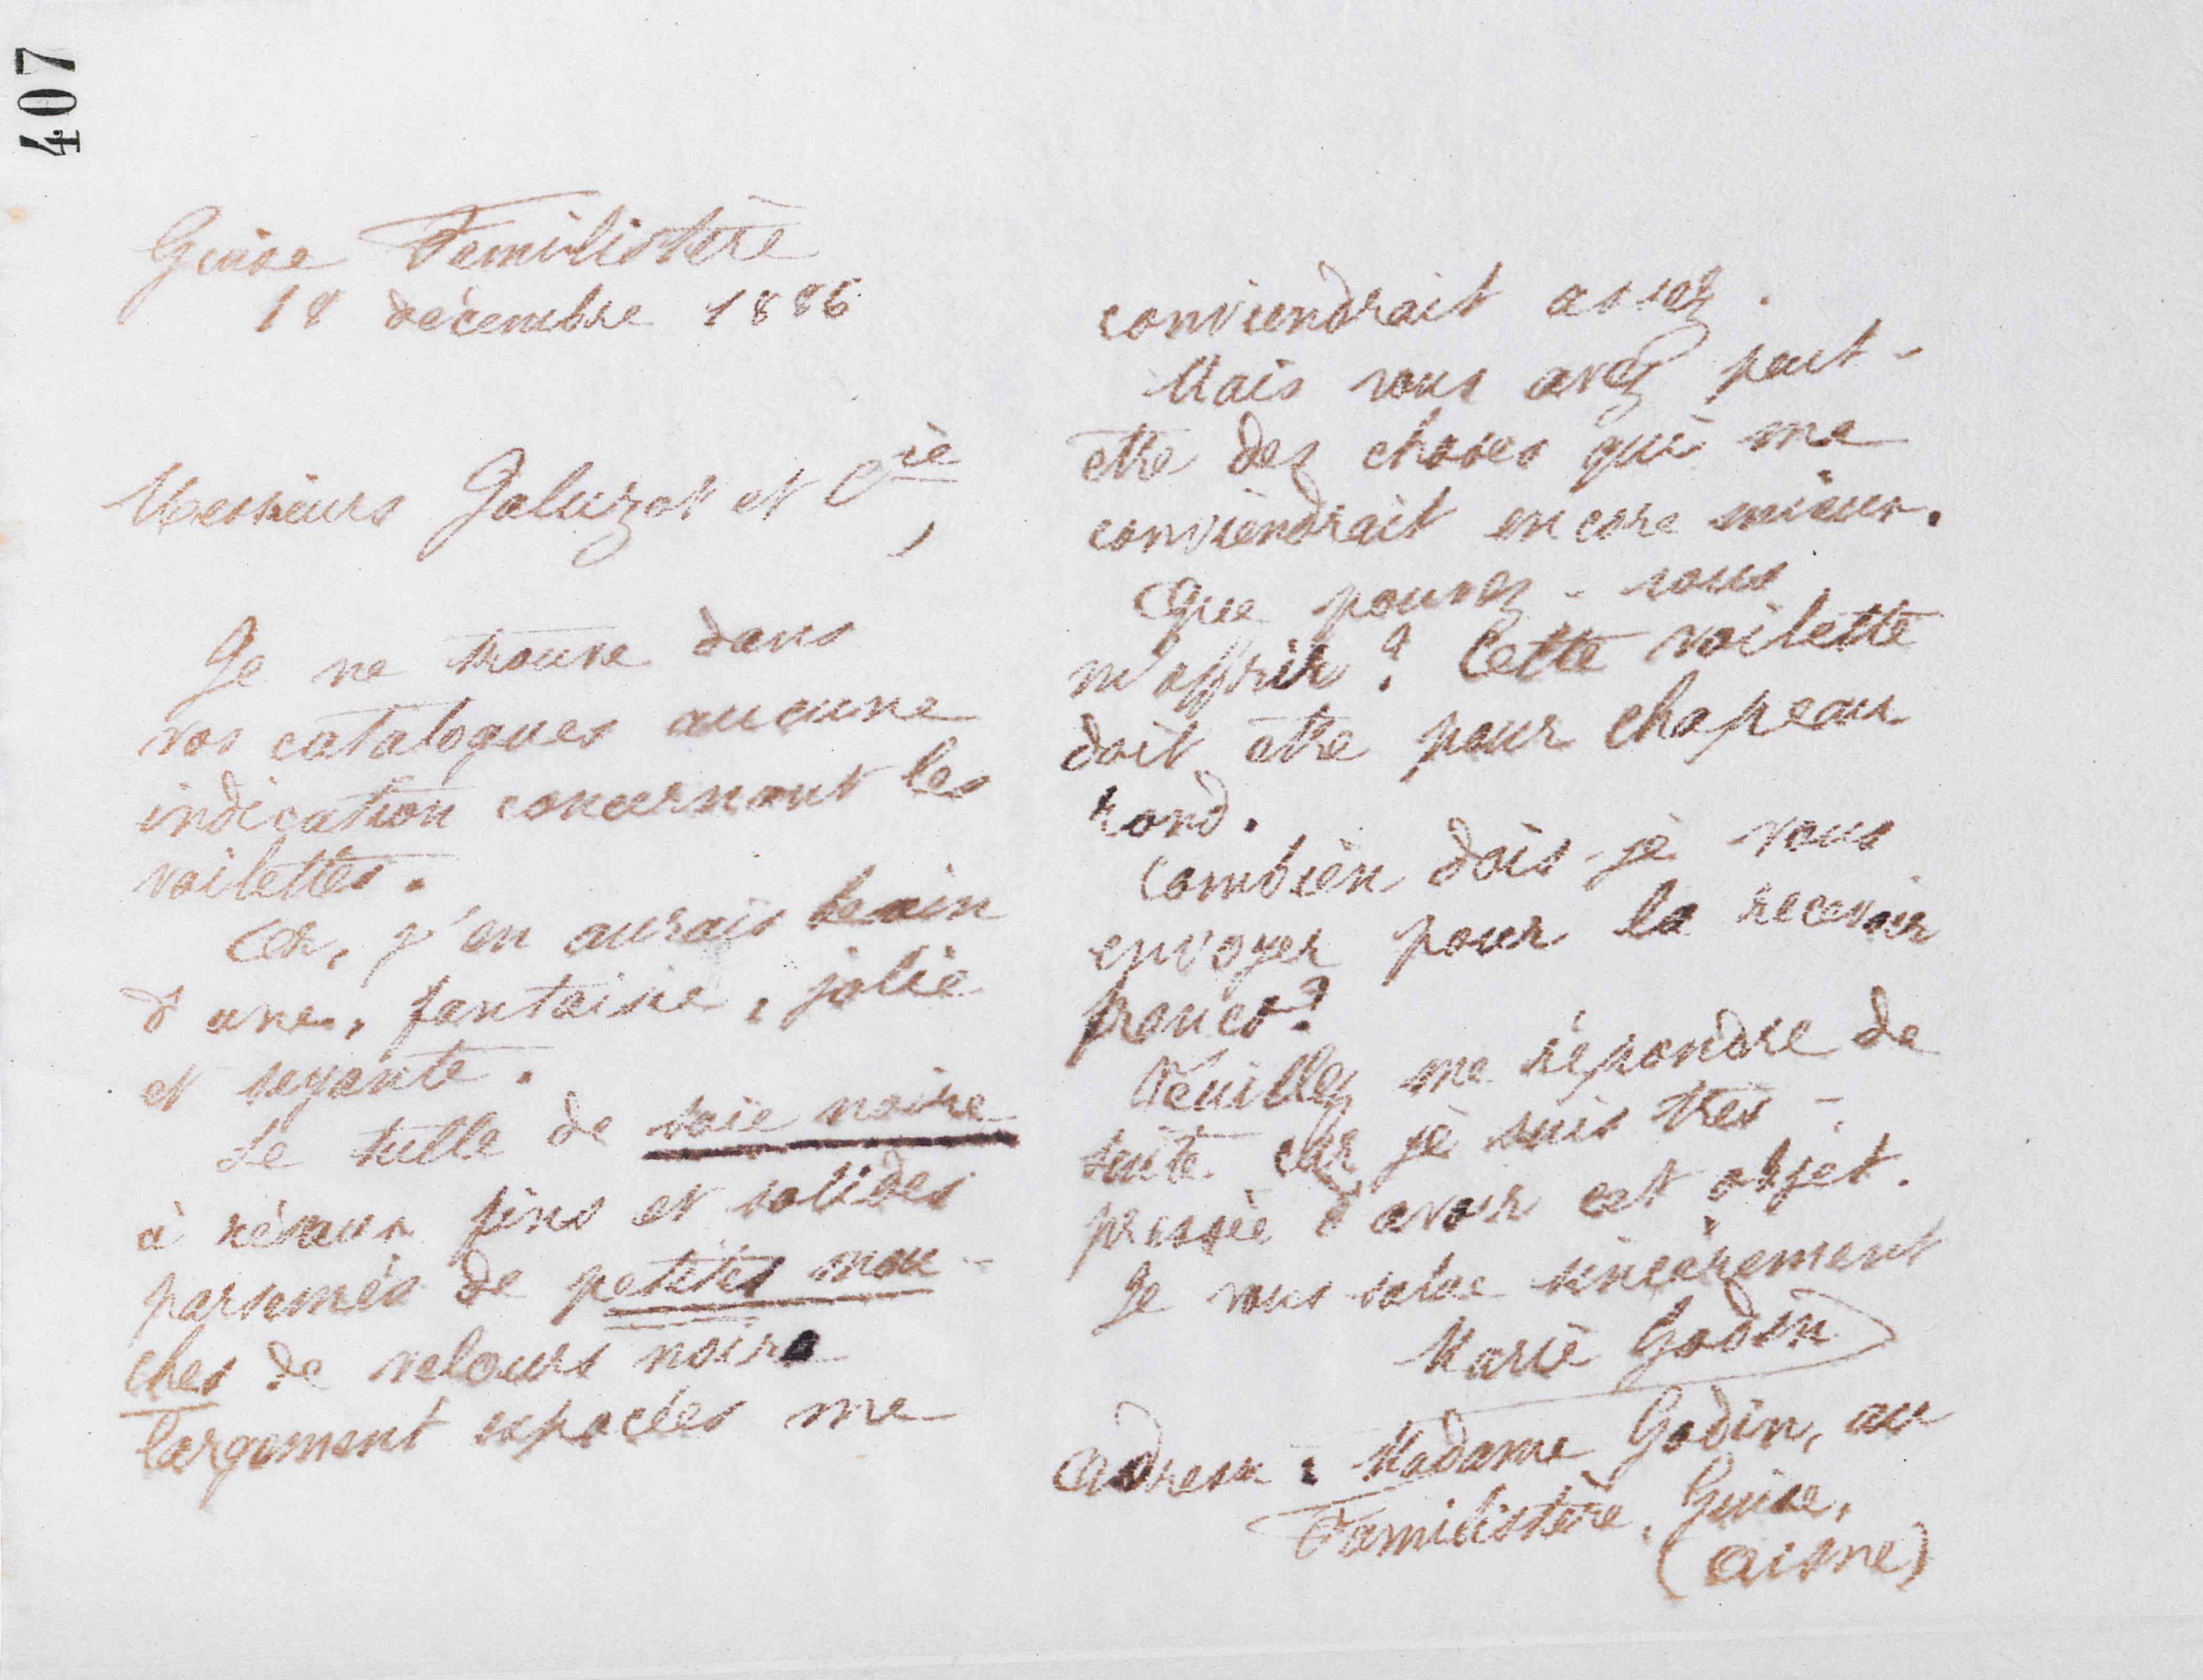 407
Guise Familistère
18 décembre 1886
Messieurs Jaluzot et Cie,
Je ne trouve dans
vos catalogues aucune
indication concernant les
voilettes.
Or, j'en aurais besoin
d'une, fantaisie, jolie
et seyante.
Le tulle de soie noire
à réseaux fins et solides
parsemés de petites mou-
ches de velours noire
largement espacées me
conviendrait assez.
Mais vous avez peut-
être des choses qui me
conviendrait encore mieux.
Que pouvez-vous
m'offrir ? Cette voilette
doit être pour chapeau
rond.
Combien dois-je vous
envoyer pour la recevoir
franco ?
Veuillez me répondre de
suite car je suis très-
pressée d'avoir cet objet.
Je vous salue sincèrement
Marie Godin
Adresse : Madame Godin, au
Familistère, Guise,
(Aisne)